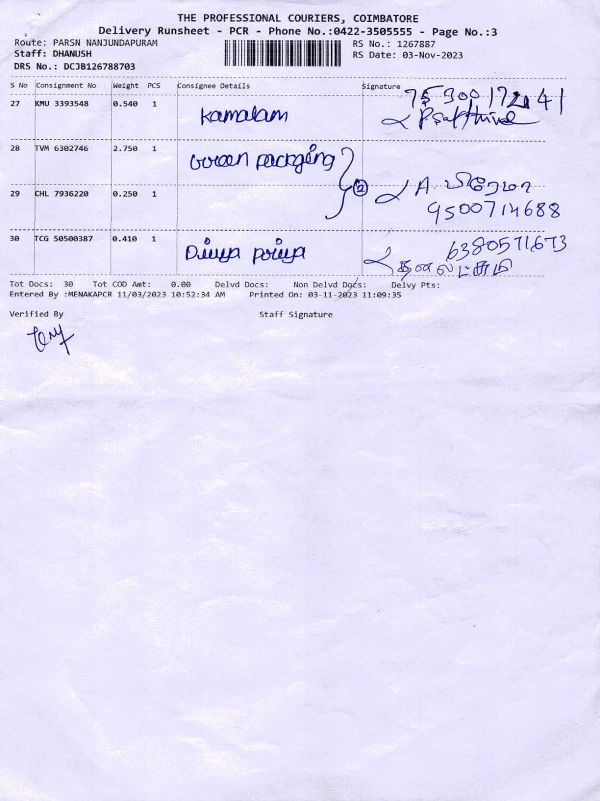 THE PROFESSIONAL COURIERS, COIMBATORE
Delivery Runsheet - PCR - Phone No.:0422-3505555 - Page No.:3
Route: PARSN NANJUNDAPURAM RS No.: 1267887
Staff: DHANUSH RS Date: 03-Nov-2023
DRS No.: DCJB126788703
S No Consignment No Weight PCS Consignee Details Signature
27 KMU 3393548 0.540 1 Kamalam
28 TVM 6302746 2.750 1 packging
29 CHL 7936220 0.250 1 2 A.
9500714688
30 TCG 50500387 0.410 1 Divya priya 6380571673
Tot Docs: 30 Tot COD Amt: 0.00 Delvd Docs: Non Delvd Docs: Delvy Pts:
Entered By :MENAKAPCR 11/03/2023 10:52:34 AM Printed On: 03-11-2023 11:09:35
Verified By Staff Signature